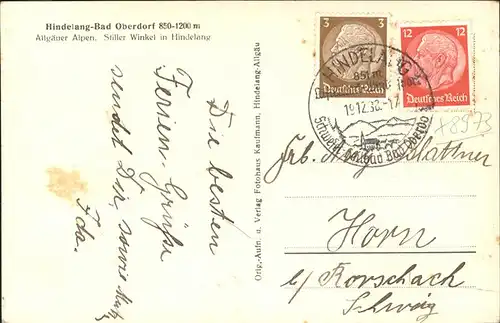 Hindelang-Bad Oberdorf 850-1200 m
Allgäuer Alpen. Stiller Winkel in Hindelang
Die besten
Ferien-Grüße
sendet Dir, sowie
Ida.
Orig.-Aufn. u. Verlag Fotohaus Kaufmann, Hindelang-Allgäu
3 3
Deutsches Reich
12 12
Deutsches Reich
HINDELANG
850 m
19.12.38-17
Schwefelmoorbad Bad Oberdorf
x8973
Frb.
Horn
b/ Rorschach
Schweiz